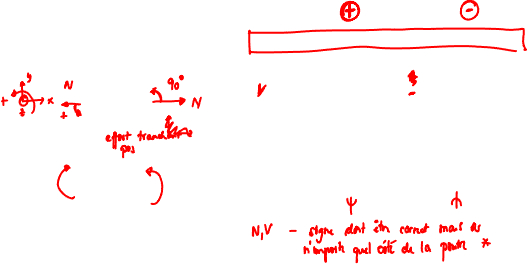 + -
y
90°
+ x N
z +
N
V
-
effort tranchant
pos
N,V - signe doit être correct mais de
n'importe quel côté de la poutre *